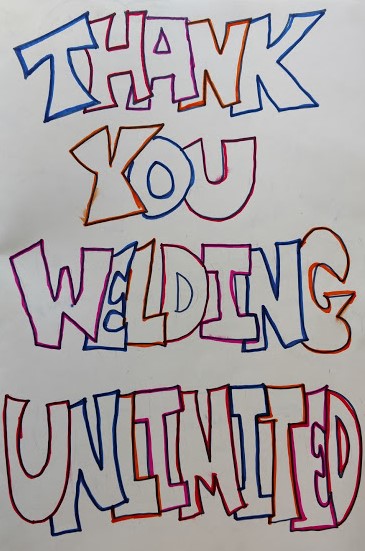 THANK
YOU
WELDING
UNLIMITED